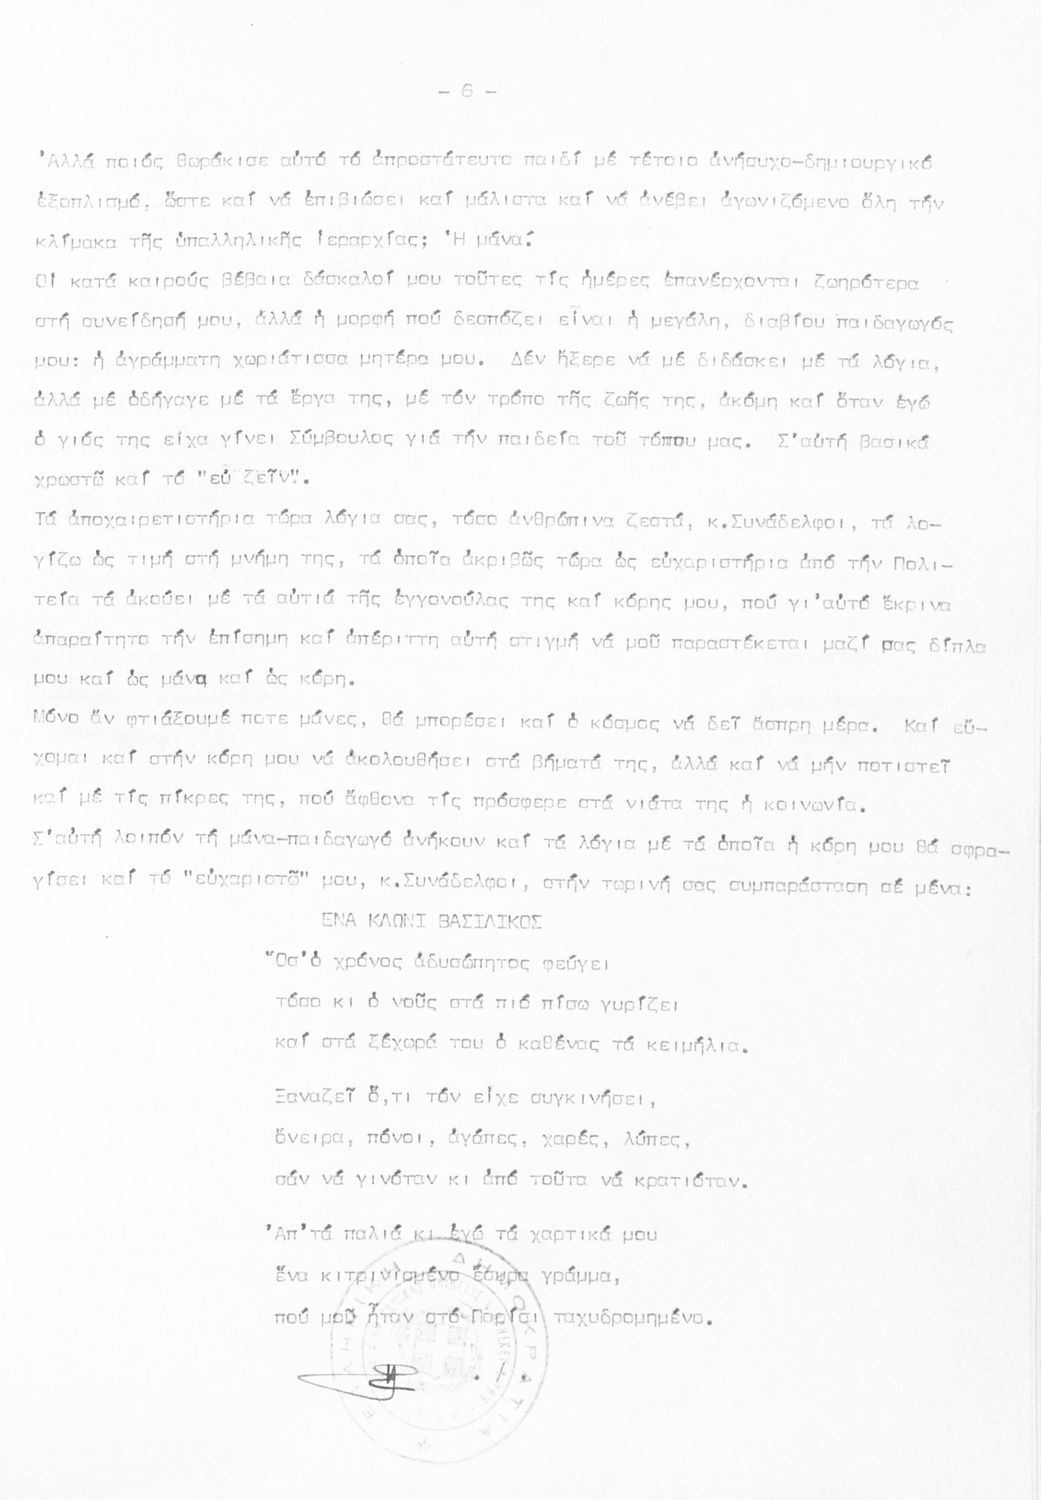 - 6 -
Ἀλλά ποιός θωράκισε αὐτό τό ἀπροστάτευτο παιδί μέ τέτοιο ἀνήσυχο-δημιουργικό
ἐξοπλισμό, ὥστε καί νά ἐπιβιώσει καί μάλιστα καί νά ἀνέβει ἀγωνιζόμενο ὅλη τήν
κλίμακα τῆς ὑπαλληλικῆς ἱεραρχίας; Ἡ μάνα!
Οἱ κατά καιρούς βέβαια δάσκαλοί μου τοῦτες τίς ἡμέρες ἐπανέρχονται ζωηρότερα
στή συνείδησή μου, ἀλλά ἡ μορφή πού δεσπόζει εἶναι ἡ μεγάλη, διαβίου παιδαγωγός
μου: ἡ ἀγράμματη χωριάτισσα μητέρα μου. Δέν ἤξερε νά μέ διδάσκει μέ τά λόγια,
ἀλλά μέ ὁδήγαγε μέ τά ἔργα της, μέ τόν τρόπο τῆς ζωῆς της, ἀκόμη καί ὅταν ἐγώ
ὁ γιός της εἶχα γίνει Σύμβουλος γιά τήν παιδεία τοῦ τόπου μας. Σ'αὐτή βασικά
χρωστῶ καί τό "εὖ ζεῖν".
Τά ἀποχαιρετιστήρια τώρα λόγια σας, τόσο ἀνθρώπινα ζεστά, κ.Συνάδελφοι, τά λο-
γίζω ὡς τιμή στή μνήμη της, τά ὁποῖα ἀκριβῶς τώρα ὡς εὐχαριστήρια ἀπό τήν Πολι-
τεία τά ἀκούει μέ τά αὐτιά τῆς ἐγγονούλας της καί κόρης μου, πού γι'αὐτό ἔκρινα
ἀπαραίτητο τήν ἐπίσημη καί ἀπέριττη αὐτή στιγμή νά μοῦ παραστέκεται μαζί σας δίπλα
μου καί ὡς μάνα καί ὡς κόρη.
Μόνο ἄν φτιάξουμέ ποτε μάνες, θά μπορέσει καί ὁ κόσμος νά δεῖ ἄσπρη μέρα. Καί εὔ-
χομαι καί στήν κόρη μου νά ἀκολουθήσει στά βήματά της, ἀλλά καί νά μήν ποτιστεῖ
καί μέ τίς πίκρες της, πού ἄφθονα τίς πρόσφερε στά νιάτα της ἡ κοινωνία.
Σ'αὐτή λοιπόν τή μάνα-παιδαγωγό ἀνήκουν καί τά λόγια μέ τά ὁποῖα ἡ κόρη μου θά σφρα-
γίσει καί τό "εὐχαριστῶ" μου, κ.Συνάδελφοι, στήν τωρινή σας συμπαράσταση σέ μένα:
ΕΝΑ ΚΛΩΝΙ ΒΑΣΙΛΙΚΟΣ
Ὅσ'ὁ χρόνος ἀδυσώπητος φεύγει
τόσο κι ὁ νοῦς στά πιό πίσω γυρίζει
καί στά ξέχωρά του ὁ καθένας τά κειμήλια.
Ξαναζεῖ ὅ,τι τόν εἶχε συγκινήσει,
ὄνειρα, πόνοι, ἀγάπες, χαρές, λύπες,
σάν νά γινόταν κι ἀπό τοῦτα νά κρατιόταν.
Ἀπ'τά παλιά κι ἐγώ τά χαρτικά μου
ἕνα κιτρινισμένο ἔσυρα γράμμα,
πού μοῦ ἦταν στό Παρίσι ταχυδρομημένο.
ΕΛΛΗΝΙΚΗ ΔΗΜΟΚΡΑΤΙΑ